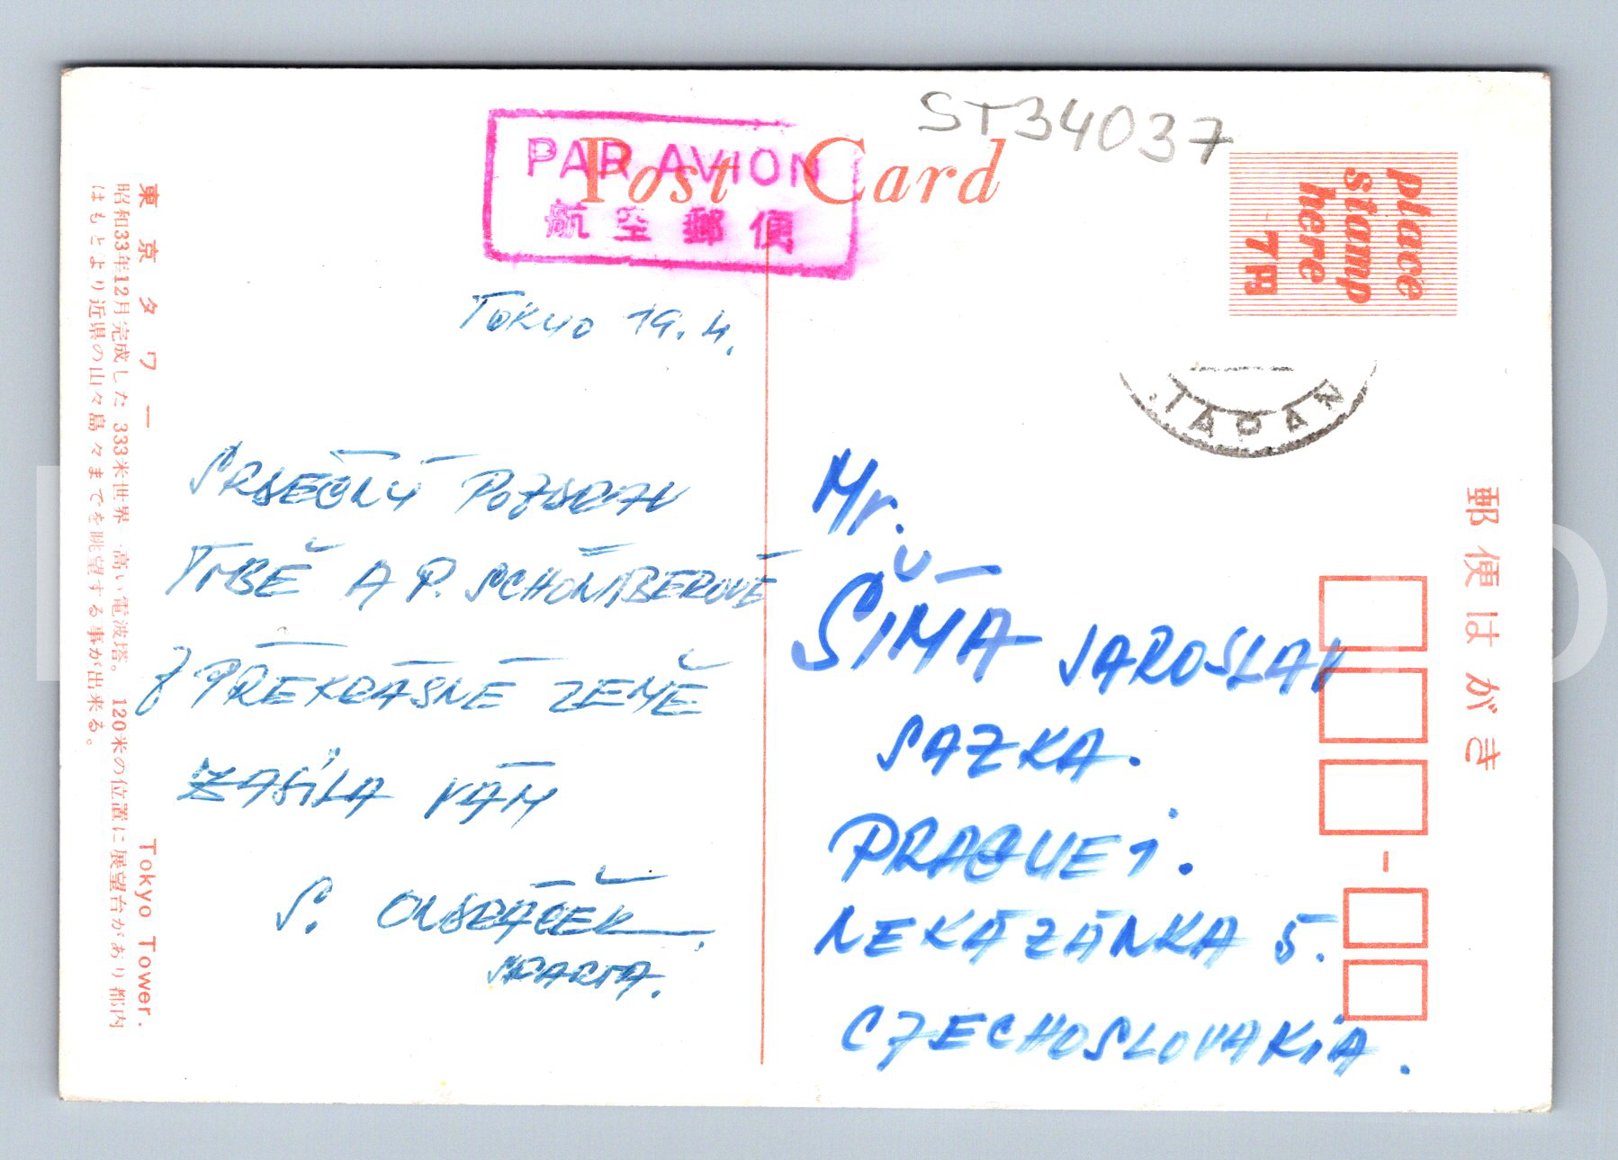 ST34037
Post Card
PAR AVION
航空郵便
place
stamp
here
7円
JAPAN
Tokyo 19. 4.
SRDEČNÝ POZDRAV
TOBĚ A P. SCHÖNIBEROVÉ
Z PŘEKRÁSNÉ ZEMĚ
ZASÍLÁ VÁM
S.
SPARTA.
Mr.
ŠÍMA JAROSLAV
SAZKA.
PRAGUE 1.
NEKÁZÁNKA 5.
CZECHOSLOVAKIA.
郵便はがき
東京タワー Tokyo Tower.
昭和33年12月完成した 333米世界一高い電波塔。 120米の位置に展望台があり都内
はもとより近県の山々島々までを眺望する事が出来る。